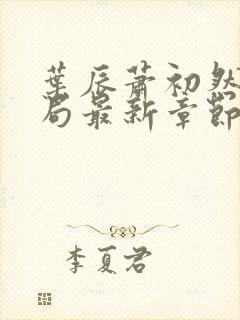 葉辰蕭初然
局最新章節
李夏君